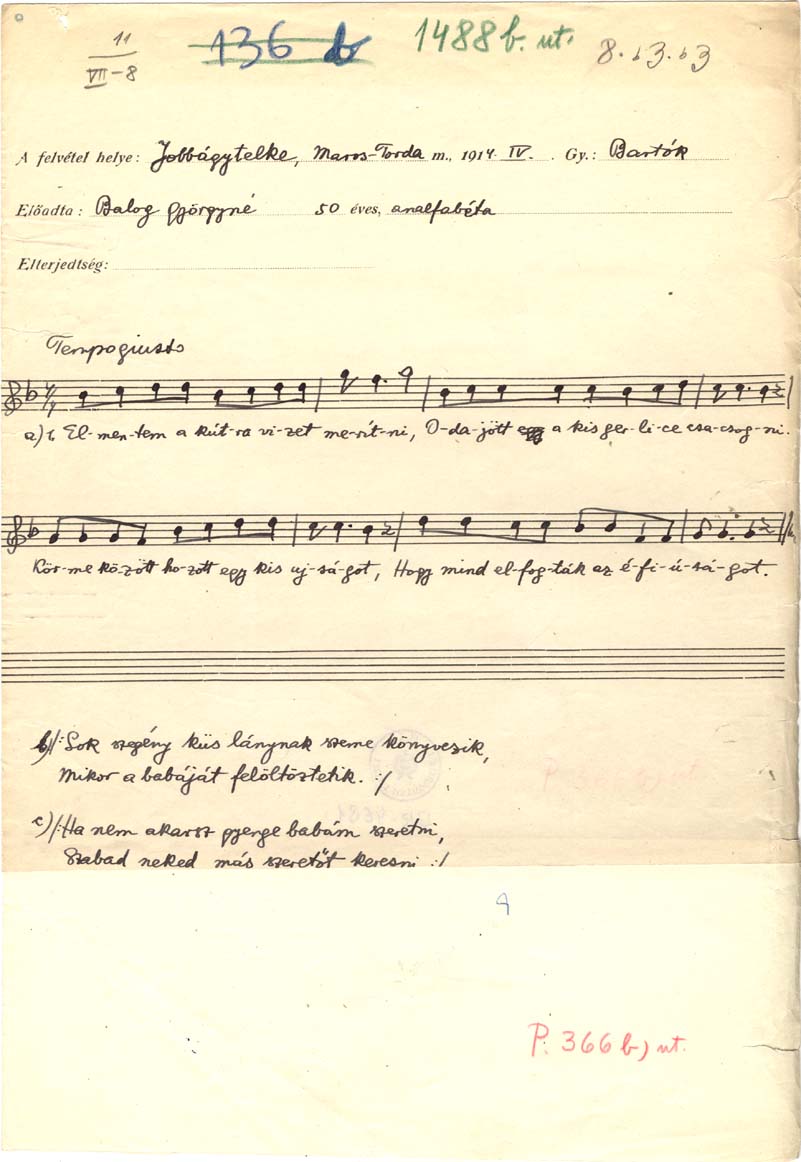 11
VII-8
136 b
1488 b. ut.
8. b3. b3
A felvétel helye: Jobbágytelke, Maros-Torda m., 1914 IV. Gy.: Bartók
Előadta: Balog Györgyné 50 éves, analfabéta
Elterjedtség:
Tempogiusto
a) El-men-tem a kút-ra vi-zet me-rít-ni, O-da-jött a kis ger-li-ce csa-csog-ni.
Kör-me kö-zött ho-zott egy kis uj-sá-got, Hogy mind el-fog-ták az é-fi-ú-sá-got.
b) /: Sok szegény küs lánynak szeme könyvezik,
Mikor a babáját felöltöztetik. :/
c) /: Ha nem akarsz gyenge babám szeretni,
Szabad neked más szeretőt keresni :/
P. 366 b) ut.